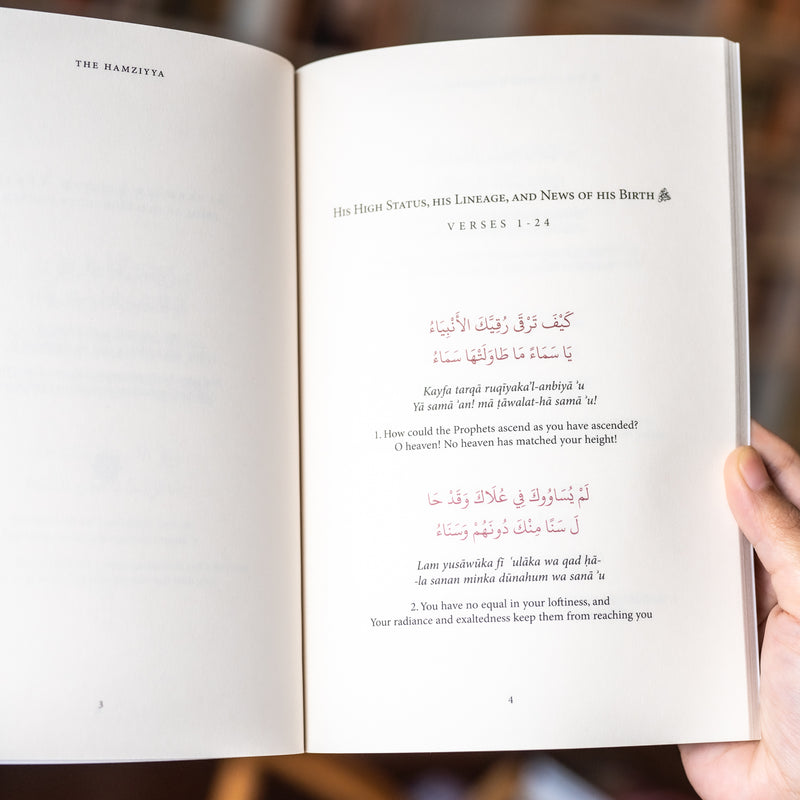 THE HAMZIYYA
3
HIS HIGH STATUS, HIS LINEAGE, AND NEWS OF HIS BIRTH ﷺ
VERSES 1-24
كَيْفَ تَرْقَى رُقِيَّكَ الأَنْبِيَاءُ
يَا سَمَاءً مَا طَاوَلَتْهَا سَمَاءُ
Kayfa tarqā ruqīyaka’l-anbiyā ’u
Yā samā ’an! mā ṭāwalat-hā samā ’u!
1. How could the Prophets ascend as you have ascended?
O heaven! No heaven has matched your height!
لَمْ يُسَاوُوكَ فِي عُلَاكَ وَقَدْ حَا
لَ سَنًا مِنْكَ دُونَهُمْ وَسَنَاءُ
Lam yusāwūka fī ‘ulāka wa qad ḥā-
-la sanan minka dūnahum wa sanā ’u
2. You have no equal in your loftiness, and
Your radiance and exaltedness keep them from reaching you
4